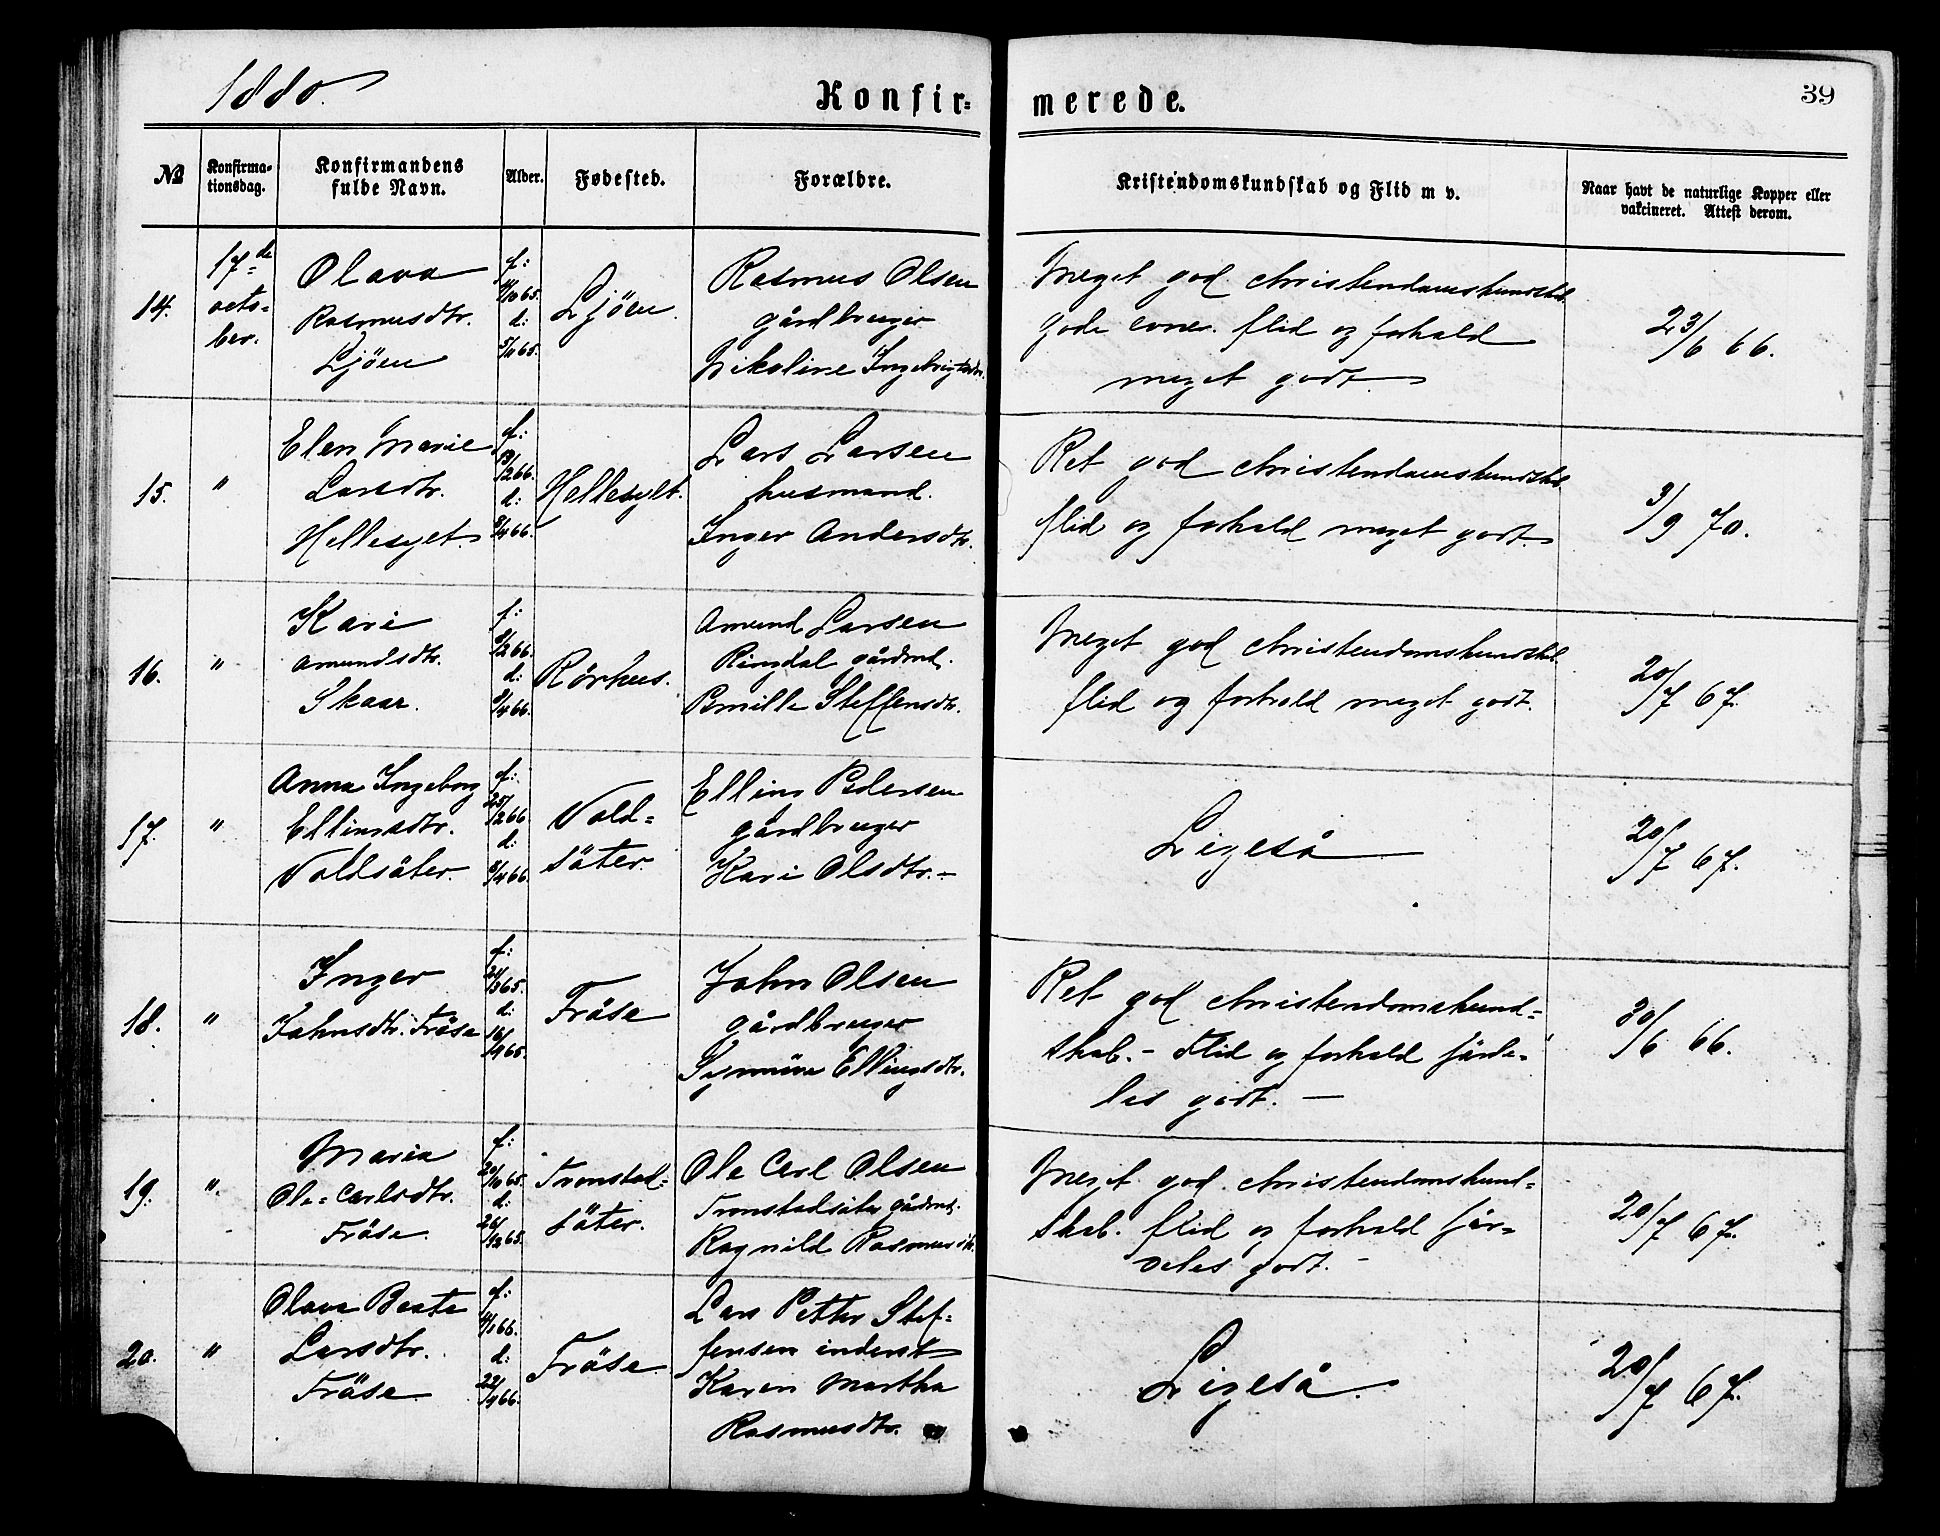 1880.
Konfir=
merede.
39
No
Konfirma=
tionsdag.
Konfirmandens
fulde Navn.
Alder.
Fødested.
Forældre.
Kristendomskundskab og Flid m v.
Naar havt de naturlige Kopper eller
vakcineret. Attest derom.
14.
17de
octo=
ber.
Olava
Rasmusdtr.
Ljöen
f:
11/10 65.
d:
5/11 65.
Ljöen.
Rasmus Olsen
gårdbruger
Nikoline Ingebrigtsdtr.
Meget god christendomskundskb.
gode evner. flid og forhold
meget godt.
23/6 66.
15.
"
Elen Marie
Larsdtr.
Hellesylt.
f:
13/2 66.
d:
8/4 66.
Hellesylt.
Lars Larsen
husmand.
Inger Andersdtr.
Ret god christendomskundskb.
flid og forhold meget godt.
3/9 70.
16.
"
Kari
Amundsdtr.
Skaar.
f:
9/2 66.
d:
8/4 66.
Rörhus.
Amund Larsen
Ringdal gårdmd.
Pernille Steffensdtr.
Meget god christendomskundskb.
flid og forhold meget godt.
20/7 67.
17.
"
Anna Ingeborg
Ellinsdtr.
Voldsäter.
f:
25/2 66
d:
8/4 66.
Vold=
säter.
Ellins Pedersen
gårdbruger
Kari Olsdtr. -
Ligeså
20/7 67.
18.
"
Inger
Johnsdtr. Fröse
f:
24/3 65.
d:
16/4 65.
Fröse
John Olsen
gårdbruger
Synnöve Ellingsdtr.
Ret god christendomskund=
skab. - Flid og forhold särde=
les godt. -
30/6 66.
19.
".
Maria
Ole=Carlsdtr.
Fröse.
f:
20/10 65.
d:
26/12 65.
Tronstad=
säter.
Ole Carl Olsen
Tronstadsäter gårdmd.
Ragnild Rasmusdtr.
Meget god christendomskund=
skab. flid og forhold sär=
deles godt. -
20/7 67.
20.
"
Olava Beate
Larsdtr.
Fröse
f:
11/1 66.
d:
22/4 66.
Fröse.
Lars Petter Stef=
fensen inderst
Karen Martha
Rasmusdtr.
Ligeså.
20/7 67.